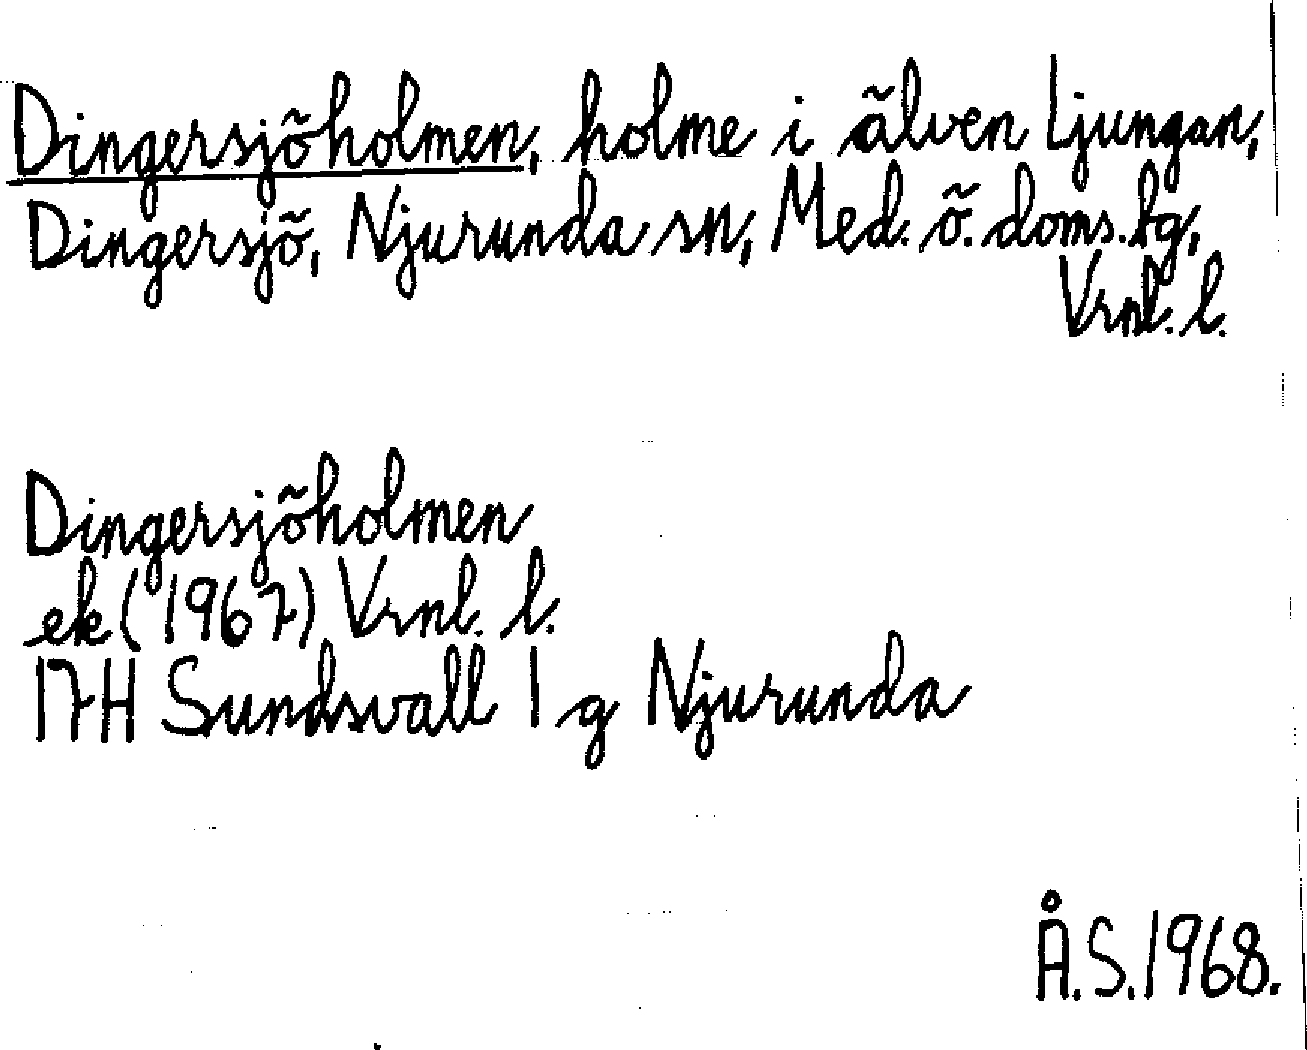 Dingersjöholmen, holme i älven Ljungan,
Dingersjö, Njurunda sn, Med. ö. doms.sg,
Vrnl. l.
Dingersjöholmen
ek (1967) Vrnl. l.
17H Sundsvall 1 g Njurunda
Å.S.1968.